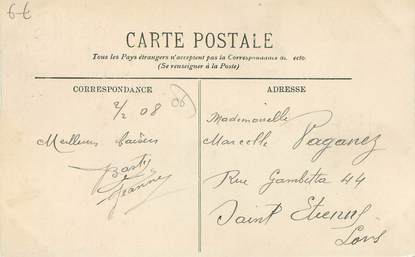 6€
CARTE POSTALE
Tous les Pays étrangers n'acceptent pas la Correspondance au recto
(Se renseigner à la Poste)
CORRESPONDANCE
2/2 08
06
Meilleurs baisers
Jeanne
ADRESSE
Mademoiselle
Marcelle Paganez
Rue Gambetta 44
Saint Etienne